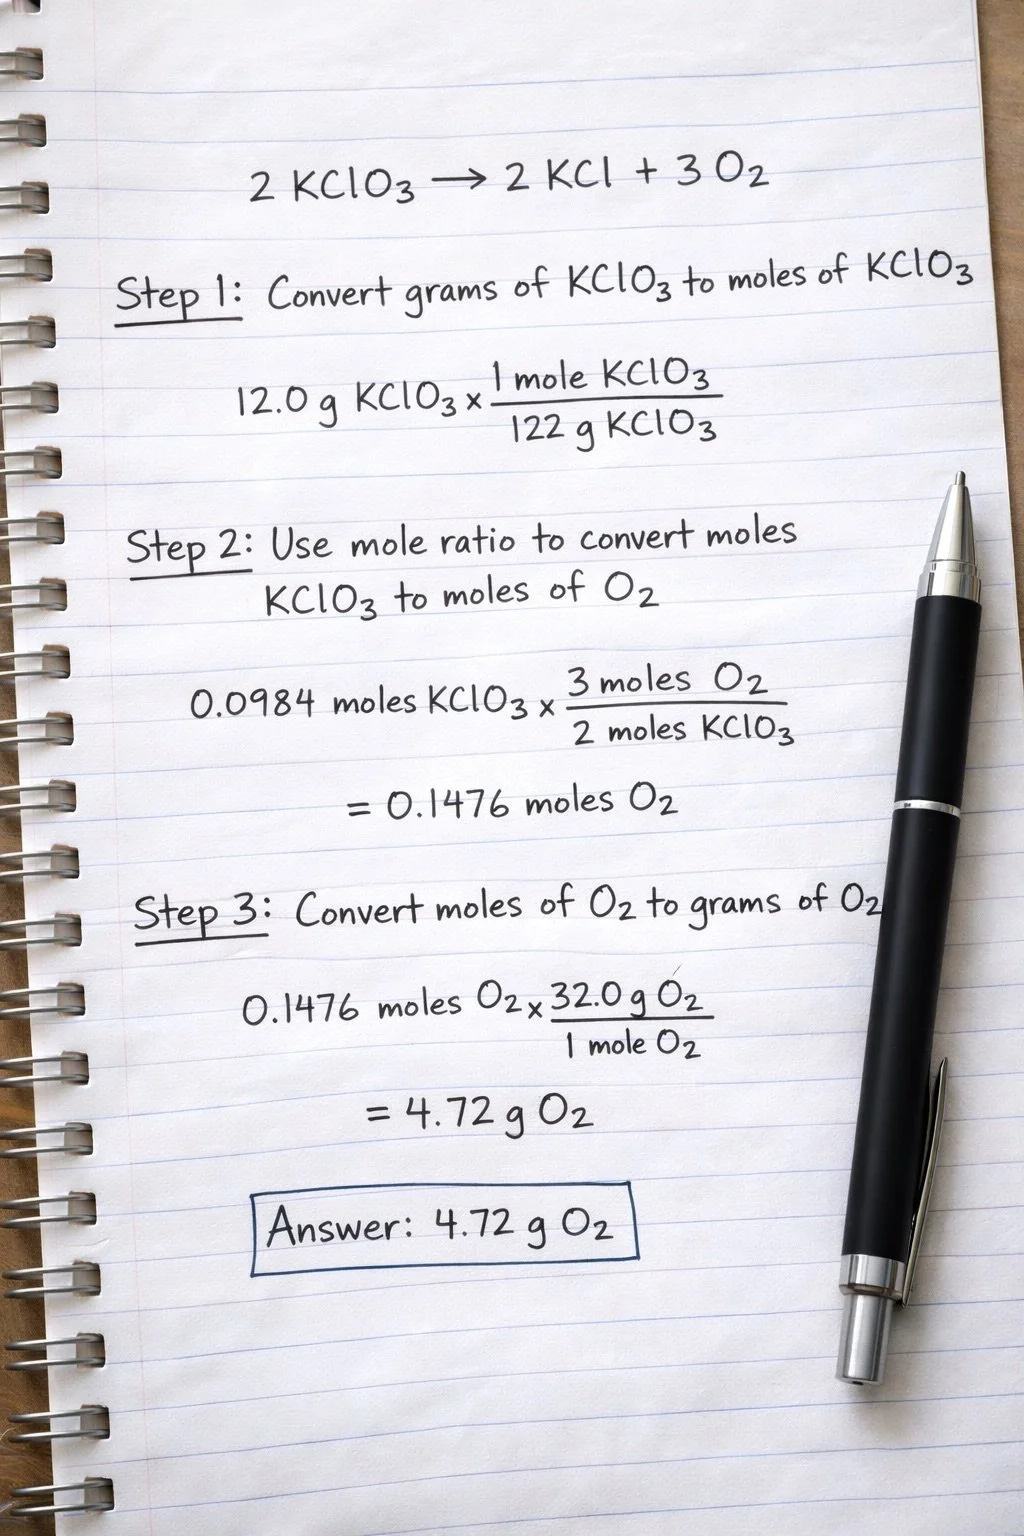 2 KClO₃ → 2 KCl + 3 O₂
Step 1: Convert grams of KClO₃ to moles of KClO₃
12.0 g KClO₃ x 1 mole KClO₃
122 g KClO₃
Step 2: Use mole ratio to convert moles
KClO₃ to moles of O₂
0.0984 moles KClO₃ x 3 moles O₂
2 moles KClO₃
= 0.1476 moles O₂
Step 3: Convert moles of O₂ to grams of O₂
0.1476 moles O₂ x 32.0 g O₂
1 mole O₂
= 4.72 g O₂
Answer: 4.72 g O₂